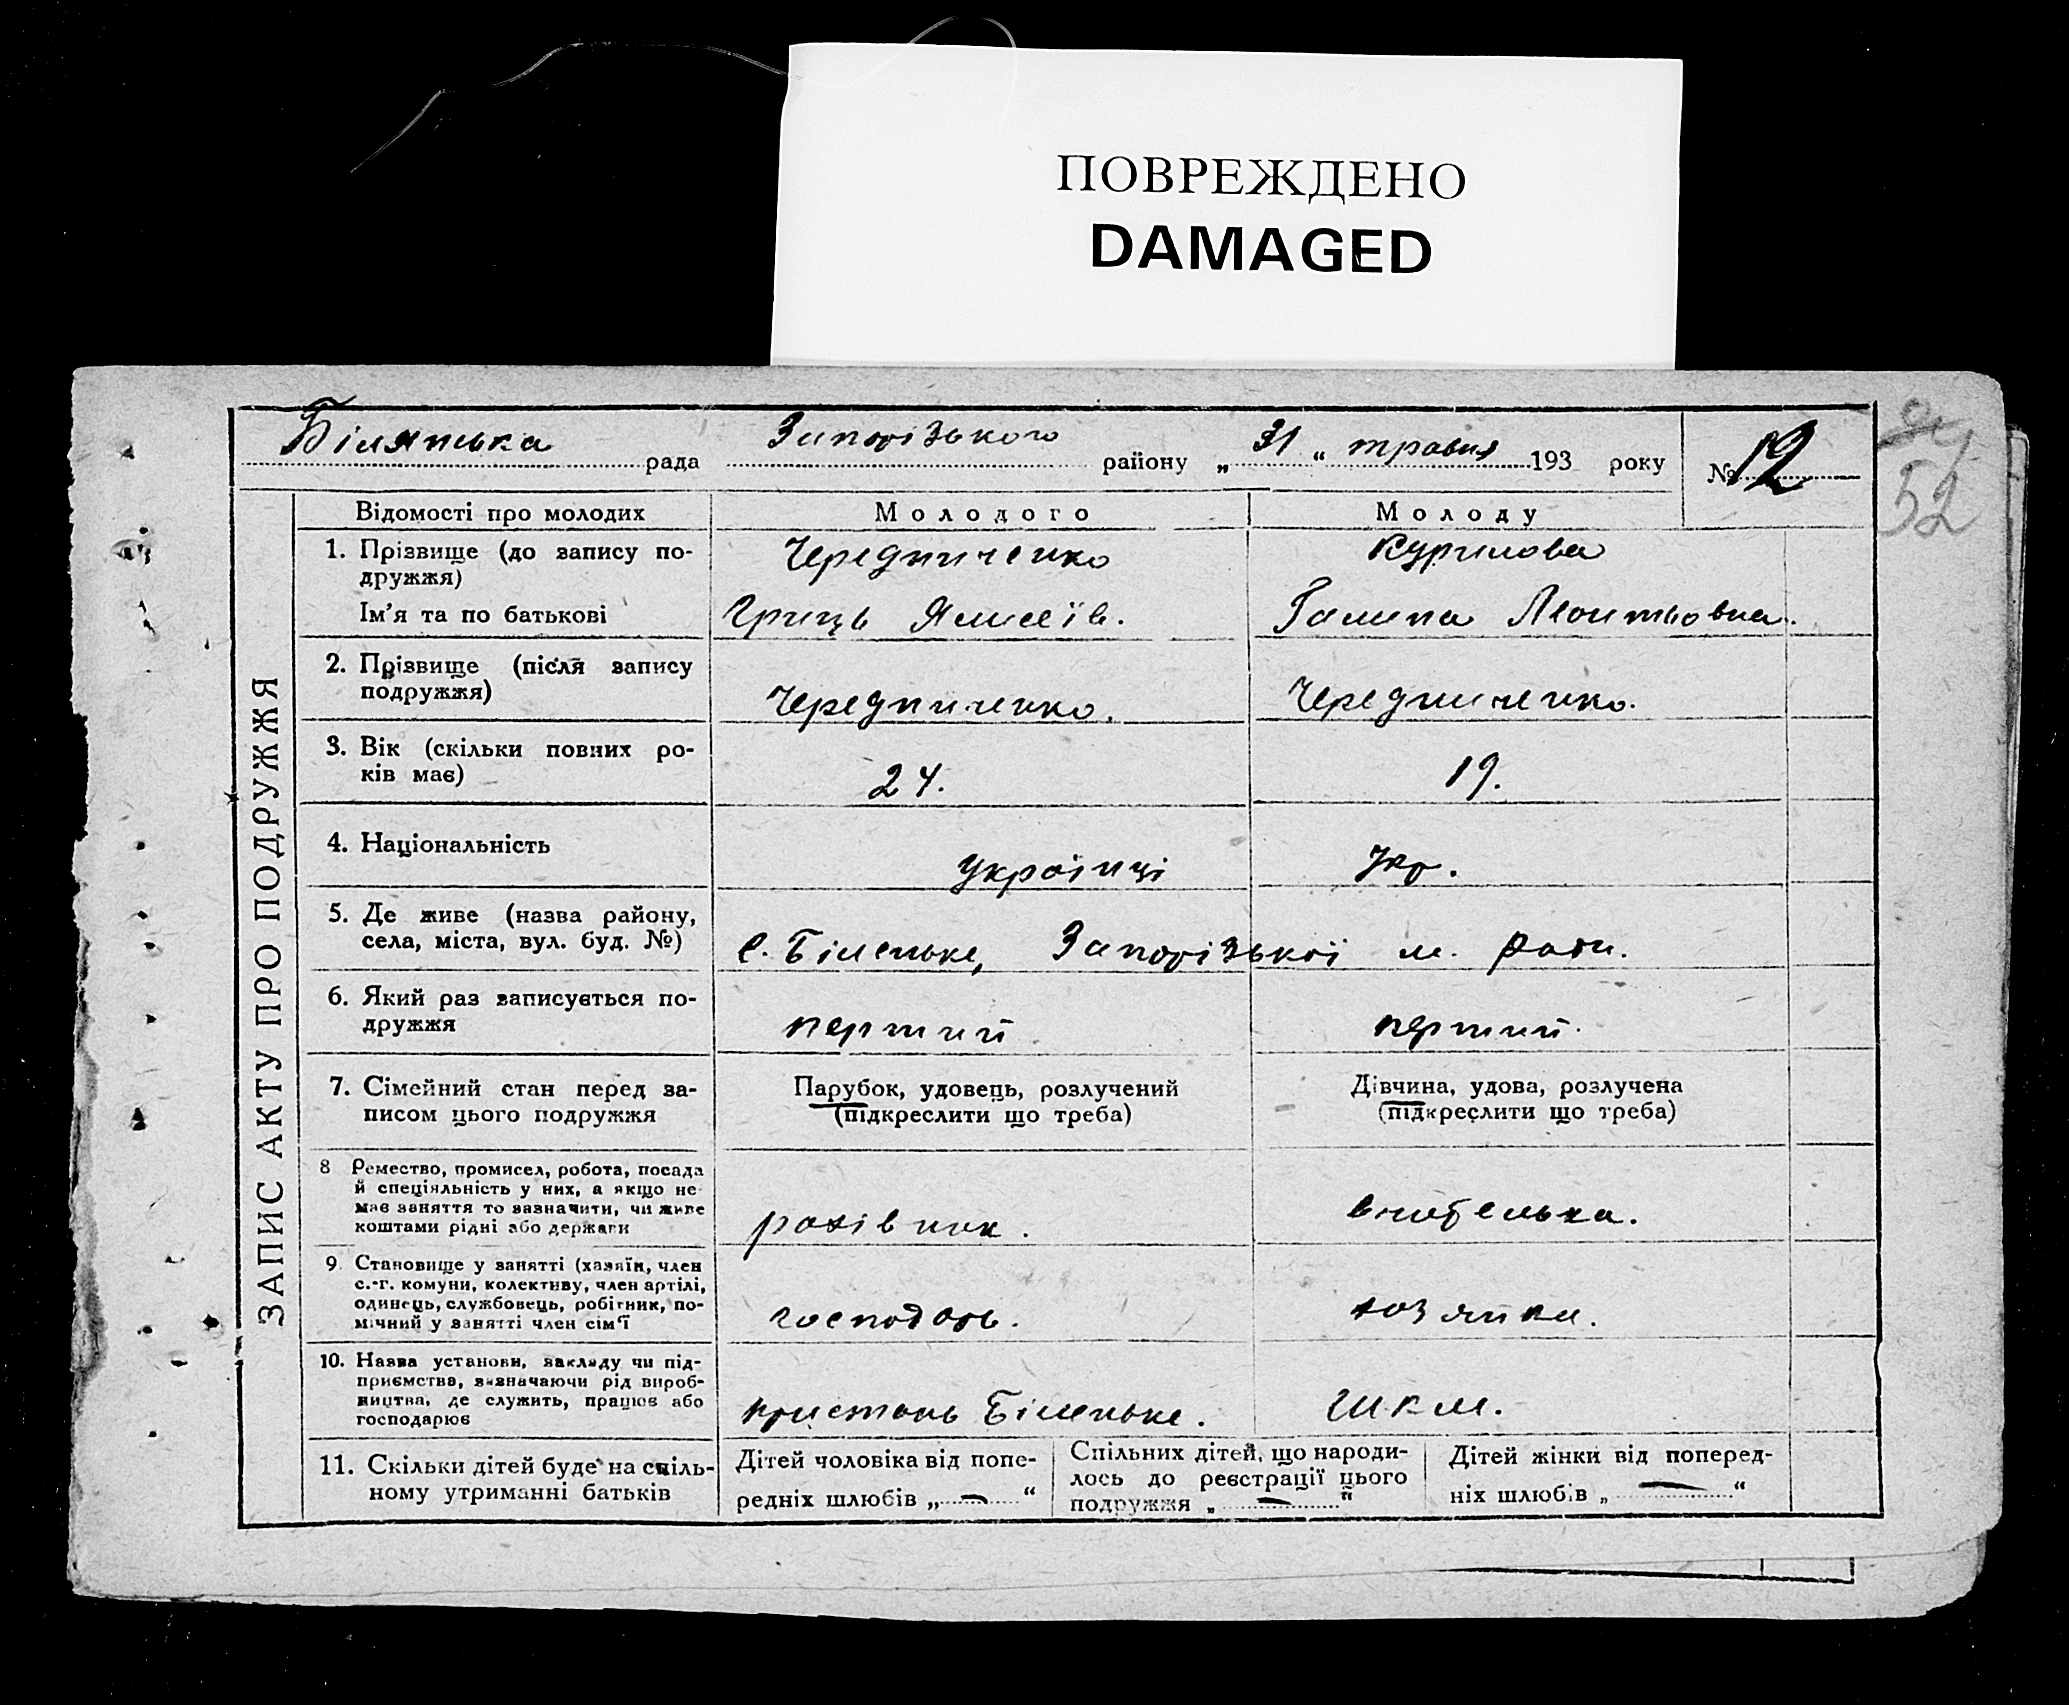 ПОВРЕЖДЕНО
DAMAGED
рада Запорізького району „ 31 “ травня 193 року № 12
52
ЗАПИС АКТУ ПРО ПОДРУЖЖЯ
Відомості про молодих Молодого Молоду
1. Прізвище (до запису по- Чередниченко Курилова
дружжя)
Ім'я та по батькові Гриць Галина Леонтьовна.
2. Прізвище (після запису
подружжя) Чередниченко. Чередниченко.
3. Вік (скільки повних ро-
ків має) 24. 19.
4. Національність українці Укр.
5. Де живе (назва району,
села, міста, вул. буд. №) с. Біленьке, Запорізької м. Ради.
6. Який раз записується по-
дружжя перший перший.
7. Сімейний стан перед за- Парубок, удовець, розлучений Дівчина, удова, розлучена
писом цього подружжя (підкреслити що треба) (підкреслити що треба)
8 Ремество, промисел, робота, посада
й спеціяльність у них, а якщо не
має заняття то зазначити, чи живе вчителька.
коштами рідні або держави рахівник.
9. Становище у занятті (хазяїн, член
с.-г. комуни, колективу, член артілі,
одинець, службовець, робітник, по- господарь. хозяйка.
мічний у занятті член сім'ї
10. Назва установи, закладу чи під-
приємства, зазначаючи рід вироб-
ництва, де служить, працює або пристань Біленьке. ШКМ.
господарює
11. Скільки дітей буде на спіль-
ному утриманні батьків
Дітей чоловіка від попе-
редніх шлюбів „ — “
Спільних дітей, що народи-
лось до реєстрації цього
подружжя „ — “
Дітей жінки від поперед-
ніх шлюбів „ — “